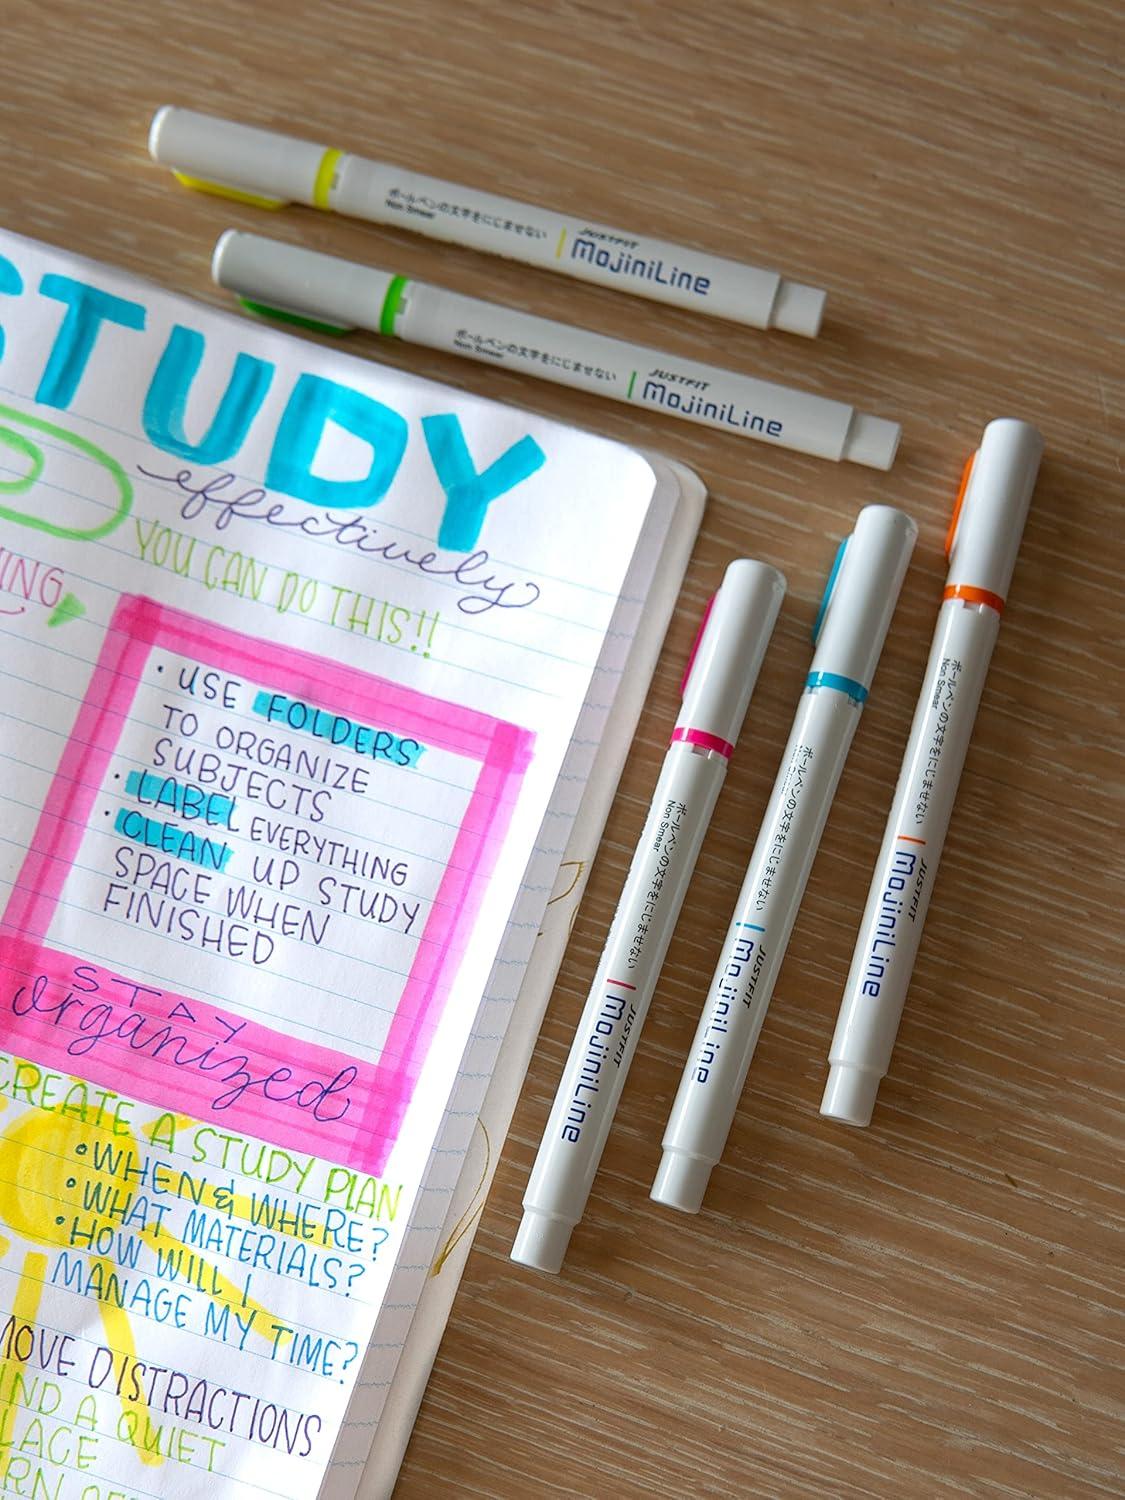 STUDY
effectively
YOU CAN DO THIS!!
• USE FOLDERS
TO ORGANIZE
SUBJECTS
• LABEL EVERYTHING
• CLEAN UP STUDY
SPACE WHEN
FINISHED
STAY
organized
CREATE A STUDY PLAN
• WHEN & WHERE?
• WHAT MATERIALS?
• HOW WILL I
MANAGE MY TIME?
DISTRACTIONS
A QUIET
ボールペンの文字をにじませない
Non Smear
JUSTFIT
MojiniLine
ボールペンの文字をにじませない
Non Smear
JUSTFIT
MojiniLine
ボールペンの文字をにじませない
Non Smear
JUSTFIT
MojiniLine
ボールペンの文字をにじませない
JUSTFIT
MojiniLine
ボールペンの文字をにじませない
Non Smear
JUSTFIT
MojiniLine